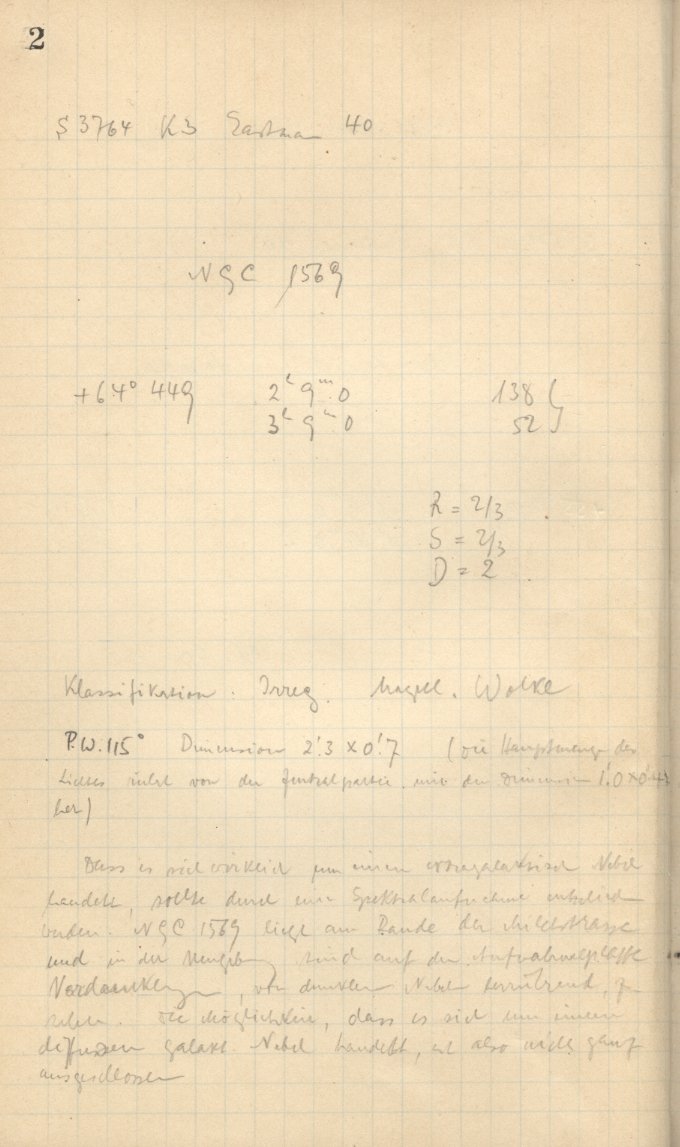 2
S 3764 K3 Eastman 40
NGC 1569
+64° 449 2ᵗ 9ᵐ.0 138
3ᵗ 9ᵐ 0 52
R = 2/3
S = 2/3
D = 2
Klassifikation. Irreg. Magell. Wolke
P.W. 115° Dimension 2'.3 × 0'.7 (Die Hauptmenge des
Lichtes rührt von der Zentralpartie mit der Dimension 1'.0 × 0'.4
her)
Dass es sich wirklich um einen extragalaktisch Nebel
handelt, sollte durch eine Spektralaufnahme entschied
werden. NGC 1569 liegt am Rande der Milchstrasse
und in der Umgebung sind auf der Aufnahmeplatte
Verdunklungen, von dunklen Nebel herrührend, zu
sehen. Die Möglichkeit, dass es sich um einen
diffusen galakt. Nebel handelt, ist also nicht ganz
ausgeschlossen